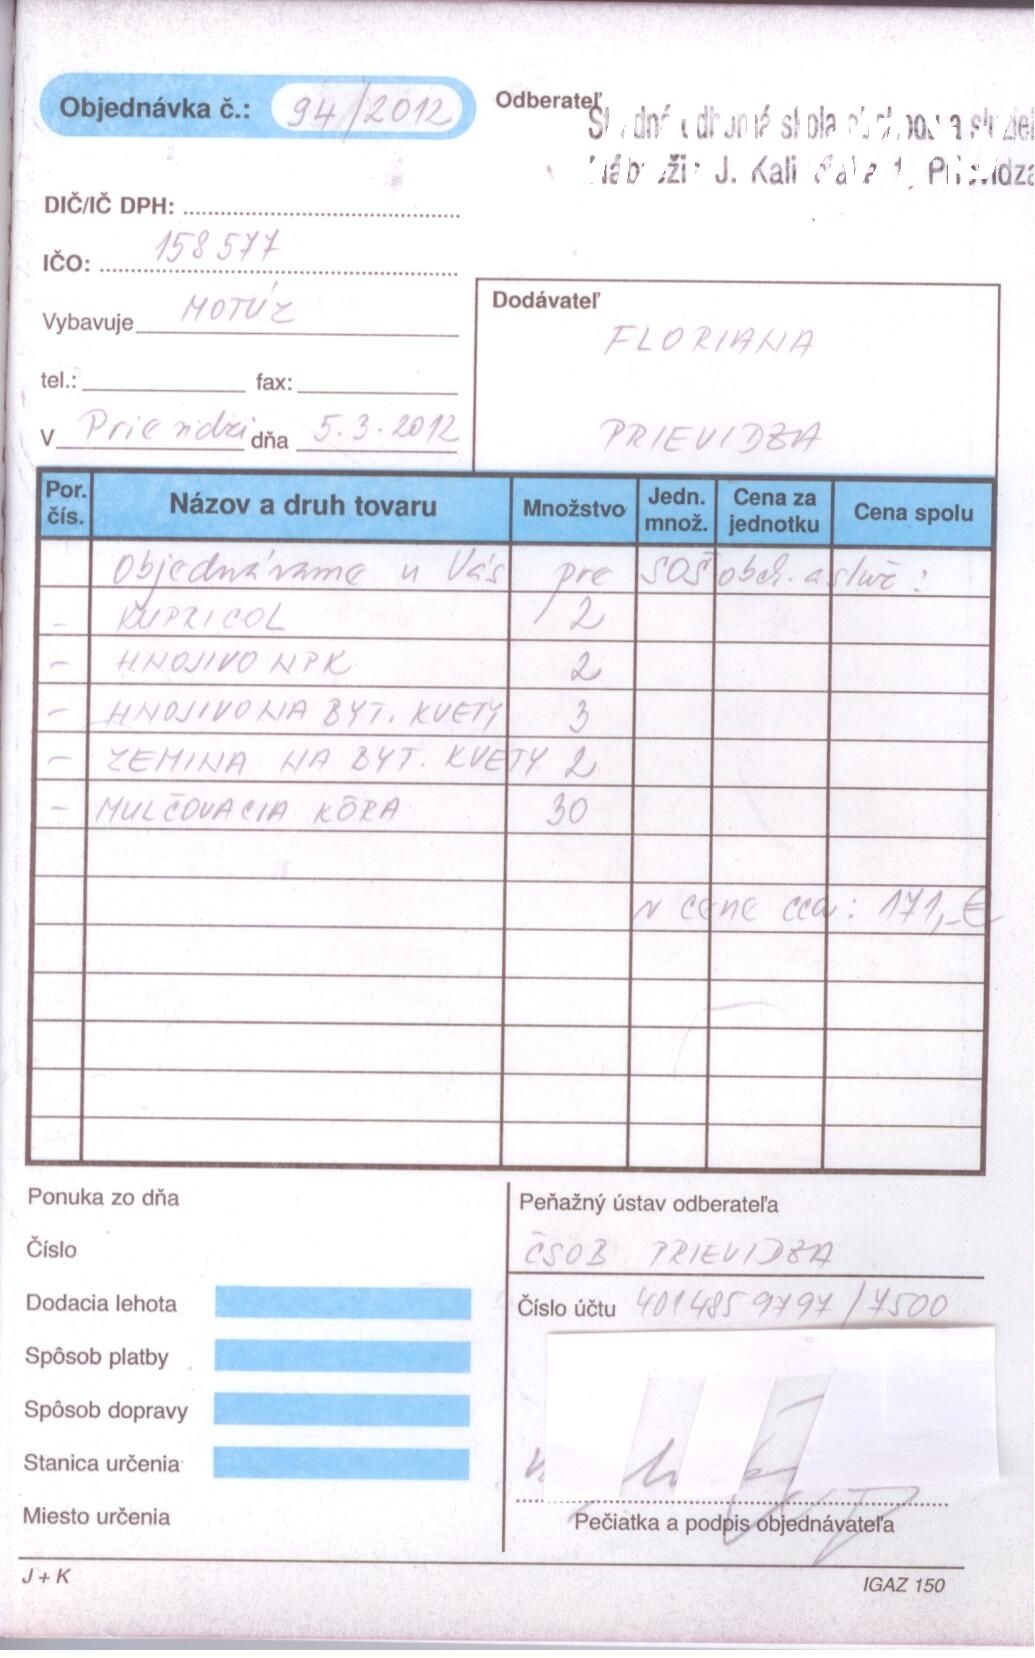 Objednávka č.: 94/2012
Odberateľ
Nábrežie J. Kalinčiaka 1, Prievidza
DIČ/IČ DPH:
IČO: 158577
Vybavuje MOTÚZ
tel.: fax:
V Prievidzi dňa 5.3.2012
Dodávateľ
FLORIANA
PRIEVIDZA
Por. čís. Názov a druh tovaru Množstvo Jedn. množ. Cena za jednotku Cena spolu
Objednávame u Vás pre SOŠ obch. a služ :
- KUPRICOL 2
- HNOJIVO NPK 2
- HNOJIVO NA BYT. KVETY 3
- ZEMINA NA BYT. KVETY 2
- MULČOVACIA KÔRA 30
v cene cca : 171,-€
Ponuka zo dňa
Číslo
Dodacia lehota
Spôsob platby
Spôsob dopravy
Stanica určenia
Miesto určenia
Peňažný ústav odberateľa
ČSOB PRIEVIDZA
Číslo účtu 4014859797/7500
Pečiatka a podpis objednávateľa
J + K
IGAZ 150